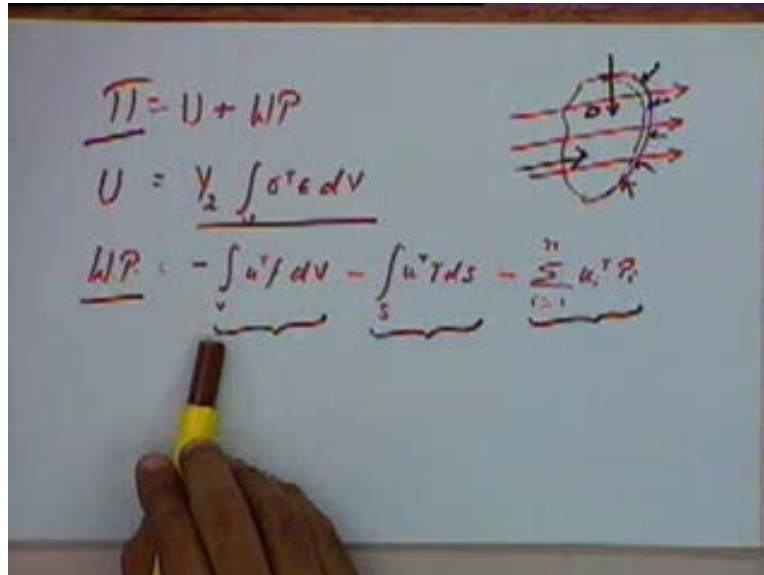 Π = U + WP
U = 1/2 ∫v σᵀ ε dV
WP = - ∫v uᵀ f dV - ∫s uᵀ T ds - Σⁿi=1 uiᵀ Pi